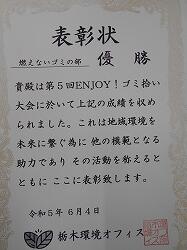 表彰状
燃えないゴミの部　優勝
貴殿は第5回ENJOY！ゴミ拾い
大会に於いて上記の成績を収め
られました。これは地域環境を
未来に繋ぐ為に他の模範となる
助力であり その活動を称えると
ともに ここに表彰致します。
令和5年 6月4日
栃木環境オフィス